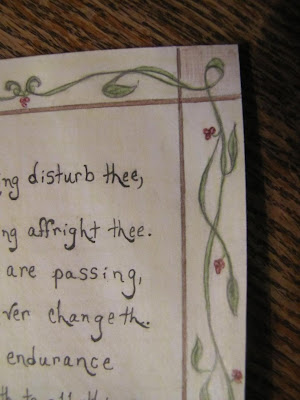 ng disturb thee,
ng affright thee.
are passing,
ver changeth.
endurance